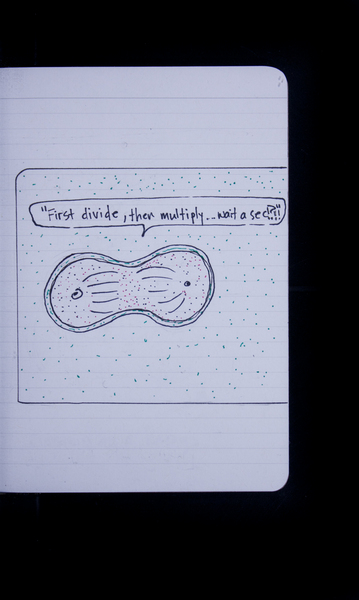 "First divide, then multiply...wait a sec!?!"